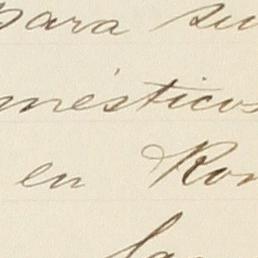 para su
mésticos
en Ro